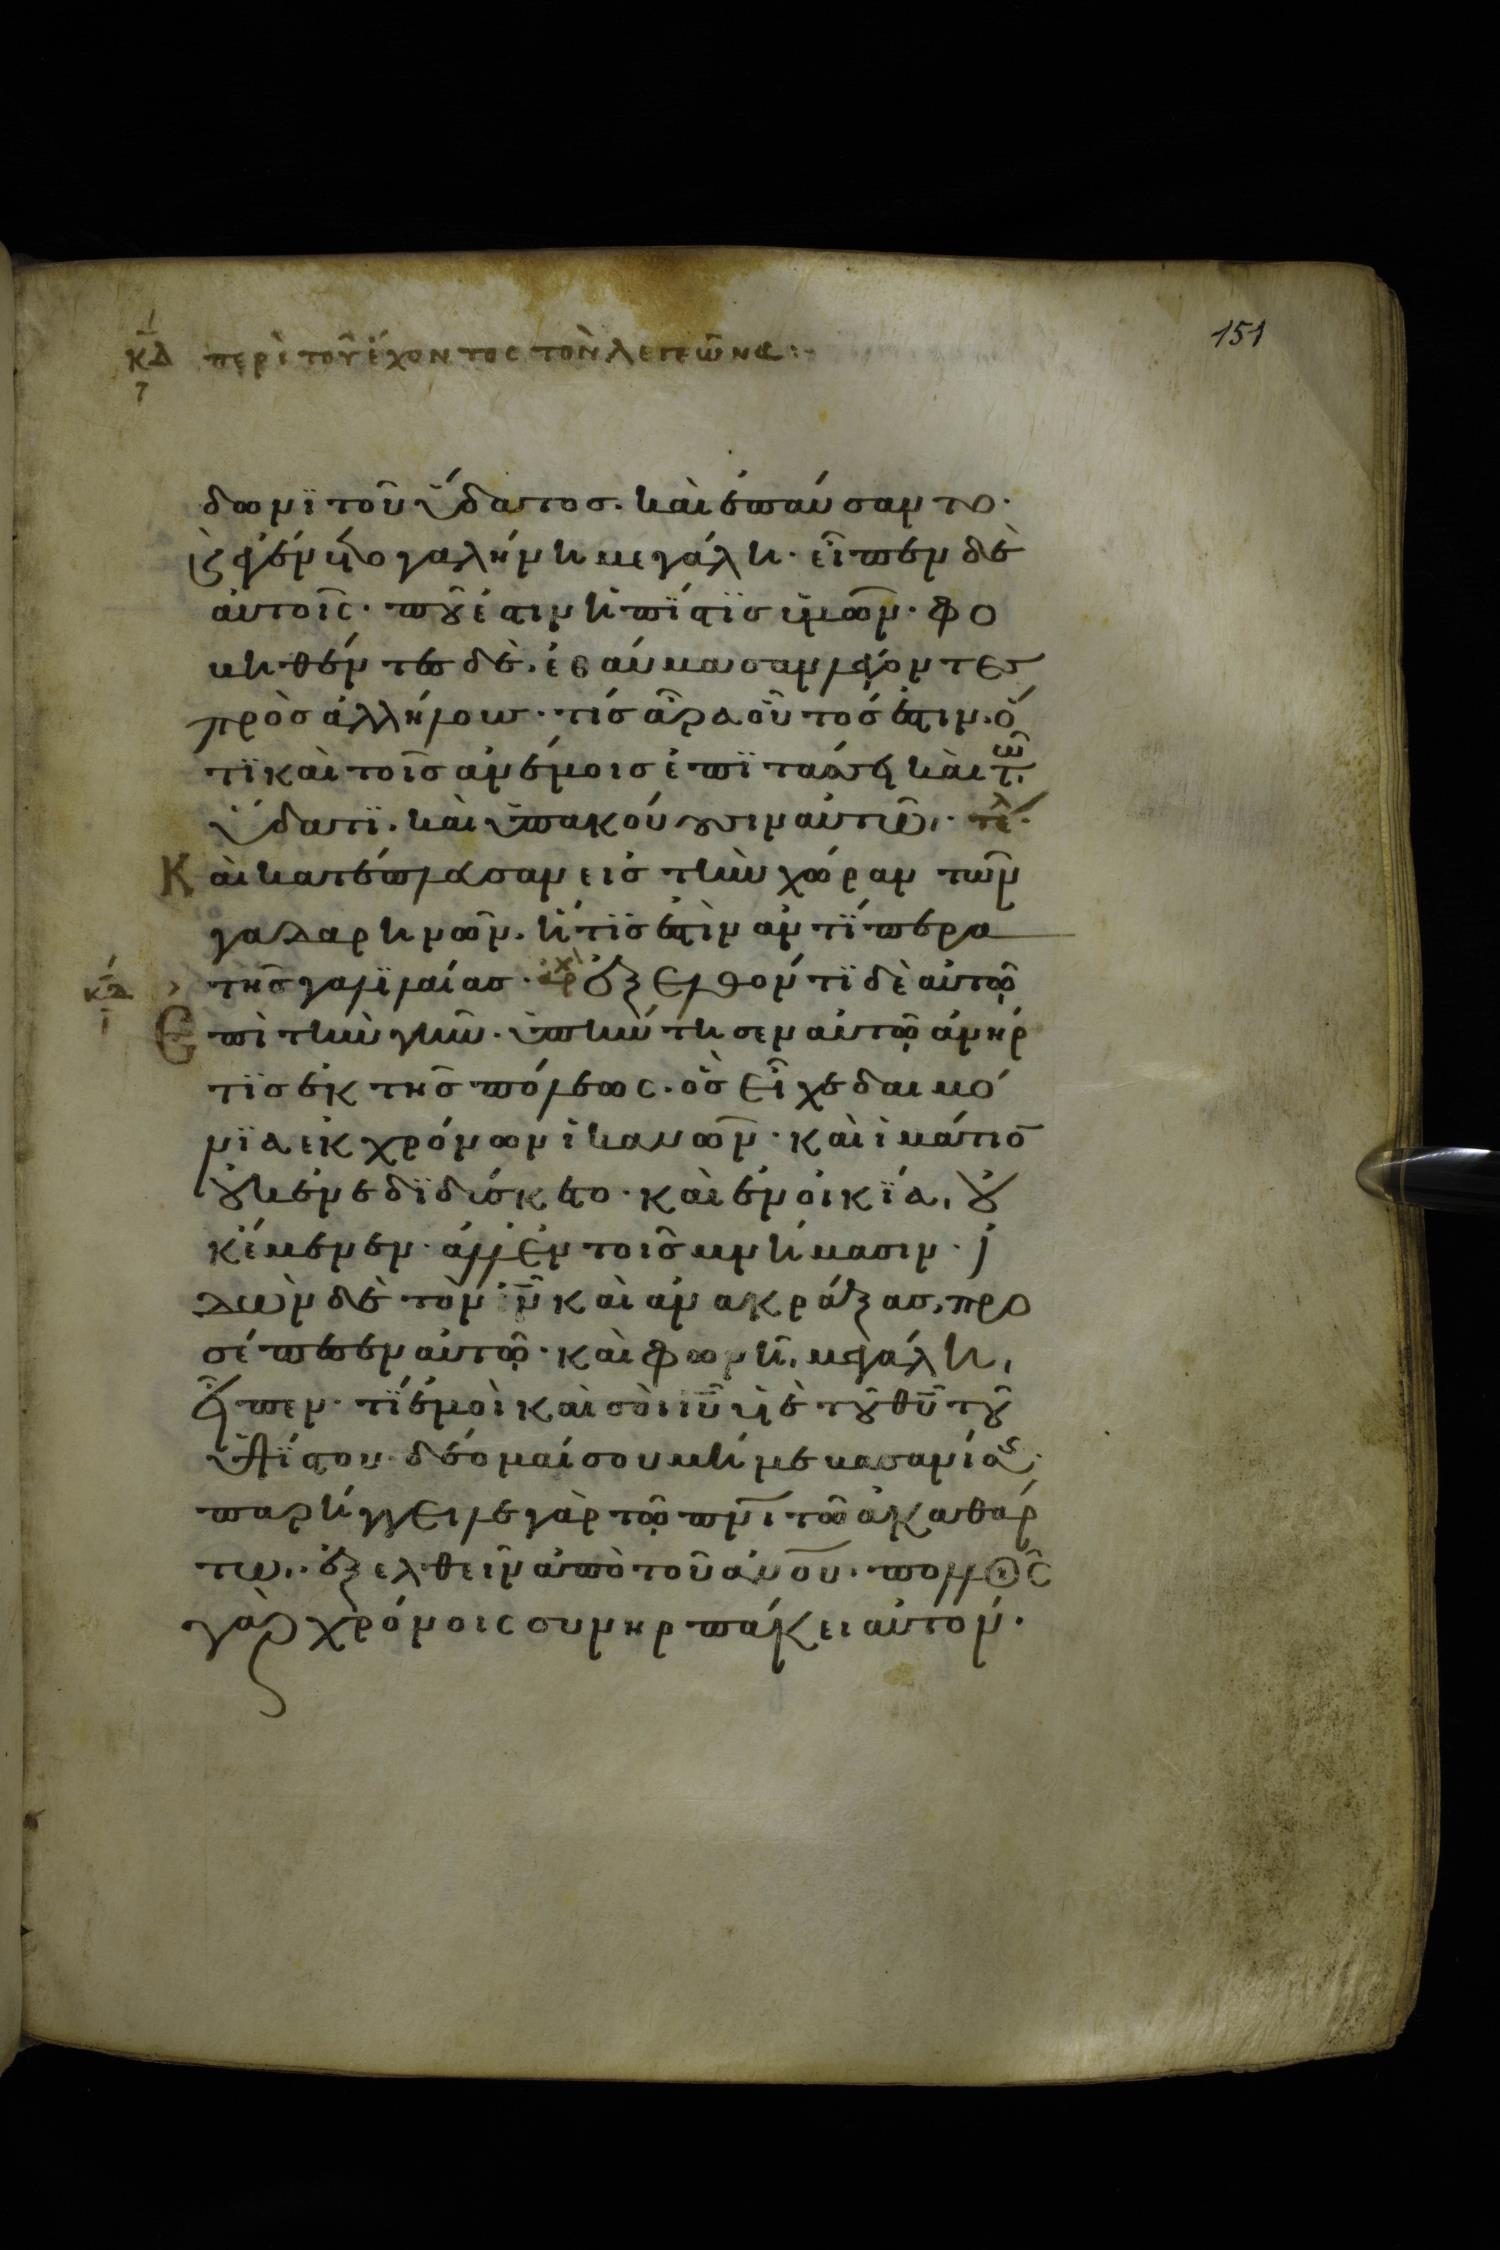 151
κδ περὶ τοῦ ἔχοντος τὸν λεγεῶνα:
δωνϊ τοῦ ὕδατοσ. καὶ ἐπαύσαντο·
καὶ ἐγένετο γαλήνη μεγάλη· εἶπεν δὲ
αὐτοῖς· ποῦ ἐστιν ἡ πίστϊσ ὑμῶν· φο
βηθέντες δὲ. ἐθαύμασαν λέγοντες
πρὸσ ἀλλήλουσ· τίσ ἆρα οὗτοσ ἐστιν. ὅ
τϊ καὶ τοῖσ ἀνέμοισ ἐπϊτάσσει καὶ τῶ
ὕδατϊ. καὶ ὑπακούουσιν αὐτῶ· τέλ
Καὶ κατέπλευσαν εἰσ τὴν χώραν τῶν
γαδαρηνῶν. ἥτϊσ ἐστὶν ἀντϊπέρα
κδ τῆσ γαλϊλαίασ· ἀρχ ἐξελθόντϊ δὲ αὐτῶ
Ἐπὶ τὴν γῆν· ὑπήντησεν αὐτῶ ἀνήρ
τϊσ ἐκ τῆσ πόλεως. ὃσ εἶχε δαιμό
νϊα ἐκ χρόνων ἱκανῶν· καὶ ἱμάτιο̅
οὐκ ἐνεδϊδύσκετο· καὶ ἐν οἰκϊα, οὐ
κ ἔμενεν· ἀλλ ἐν τοῖσ μνήμασιν· ἰ
δὼν δὲ τὸν ι̅ν̅ καὶ ἀνακράξασ, προ
σέπεσεν αὐτῶ· καὶ φωνῆ, μεγάλη,
εἶπεν· τϊ ἐμοὶ καὶ σοὶ ι̅υ̅ υἱὲ τοῦ θ̅υ̅ τοῦ
ὑψϊστου· δέομαί σου μή με βασανίσησ·
παρήγγειλε γὰρ τῶ π̅ν̅ι̅ τῶ ἀκαθάρ
τω, ἐξελθεῖν ἀπὸ τοῦ α̅ν̅ο̅υ̅· πολλοῖς
γὰρ χρόνοις συνηρπάκει αὐτόν·